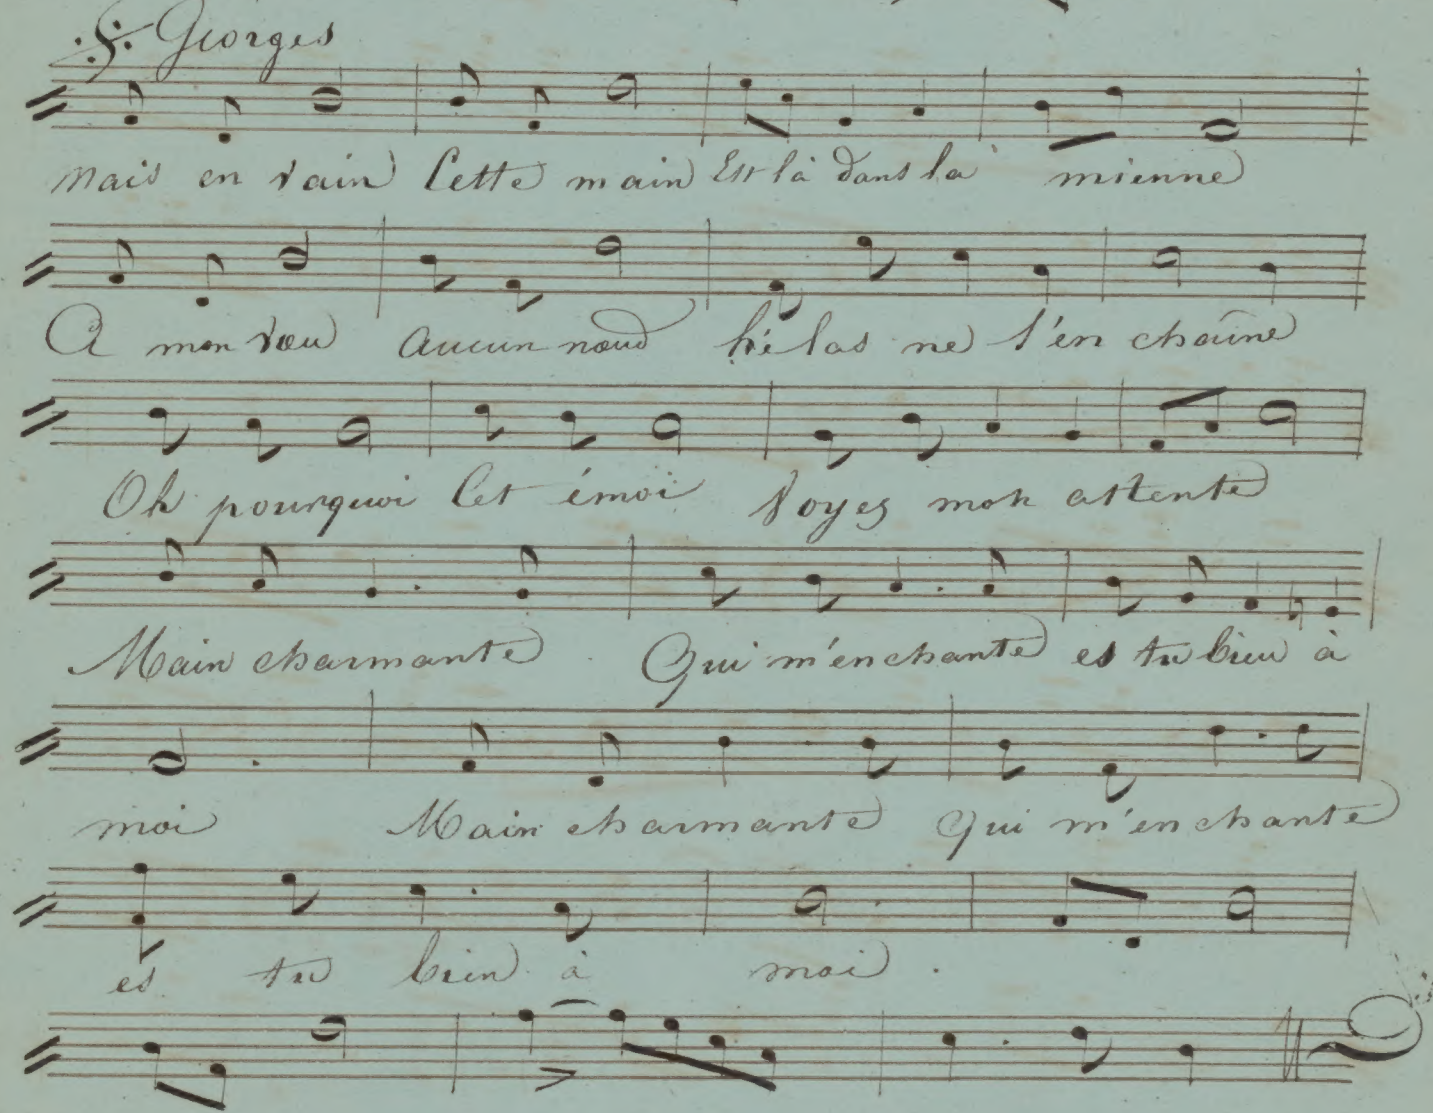 Georges
Mais en vain Cette main Est là dans la mienne
A mon vœu aucun nœud hélas ne l'en chaîne
Oh pourquoi Cet émoi Voyez mon attente
Main charmante Qui m'enchante es tu bien à
moi Main charmante Qui m'enchante
es tu bien à moi.